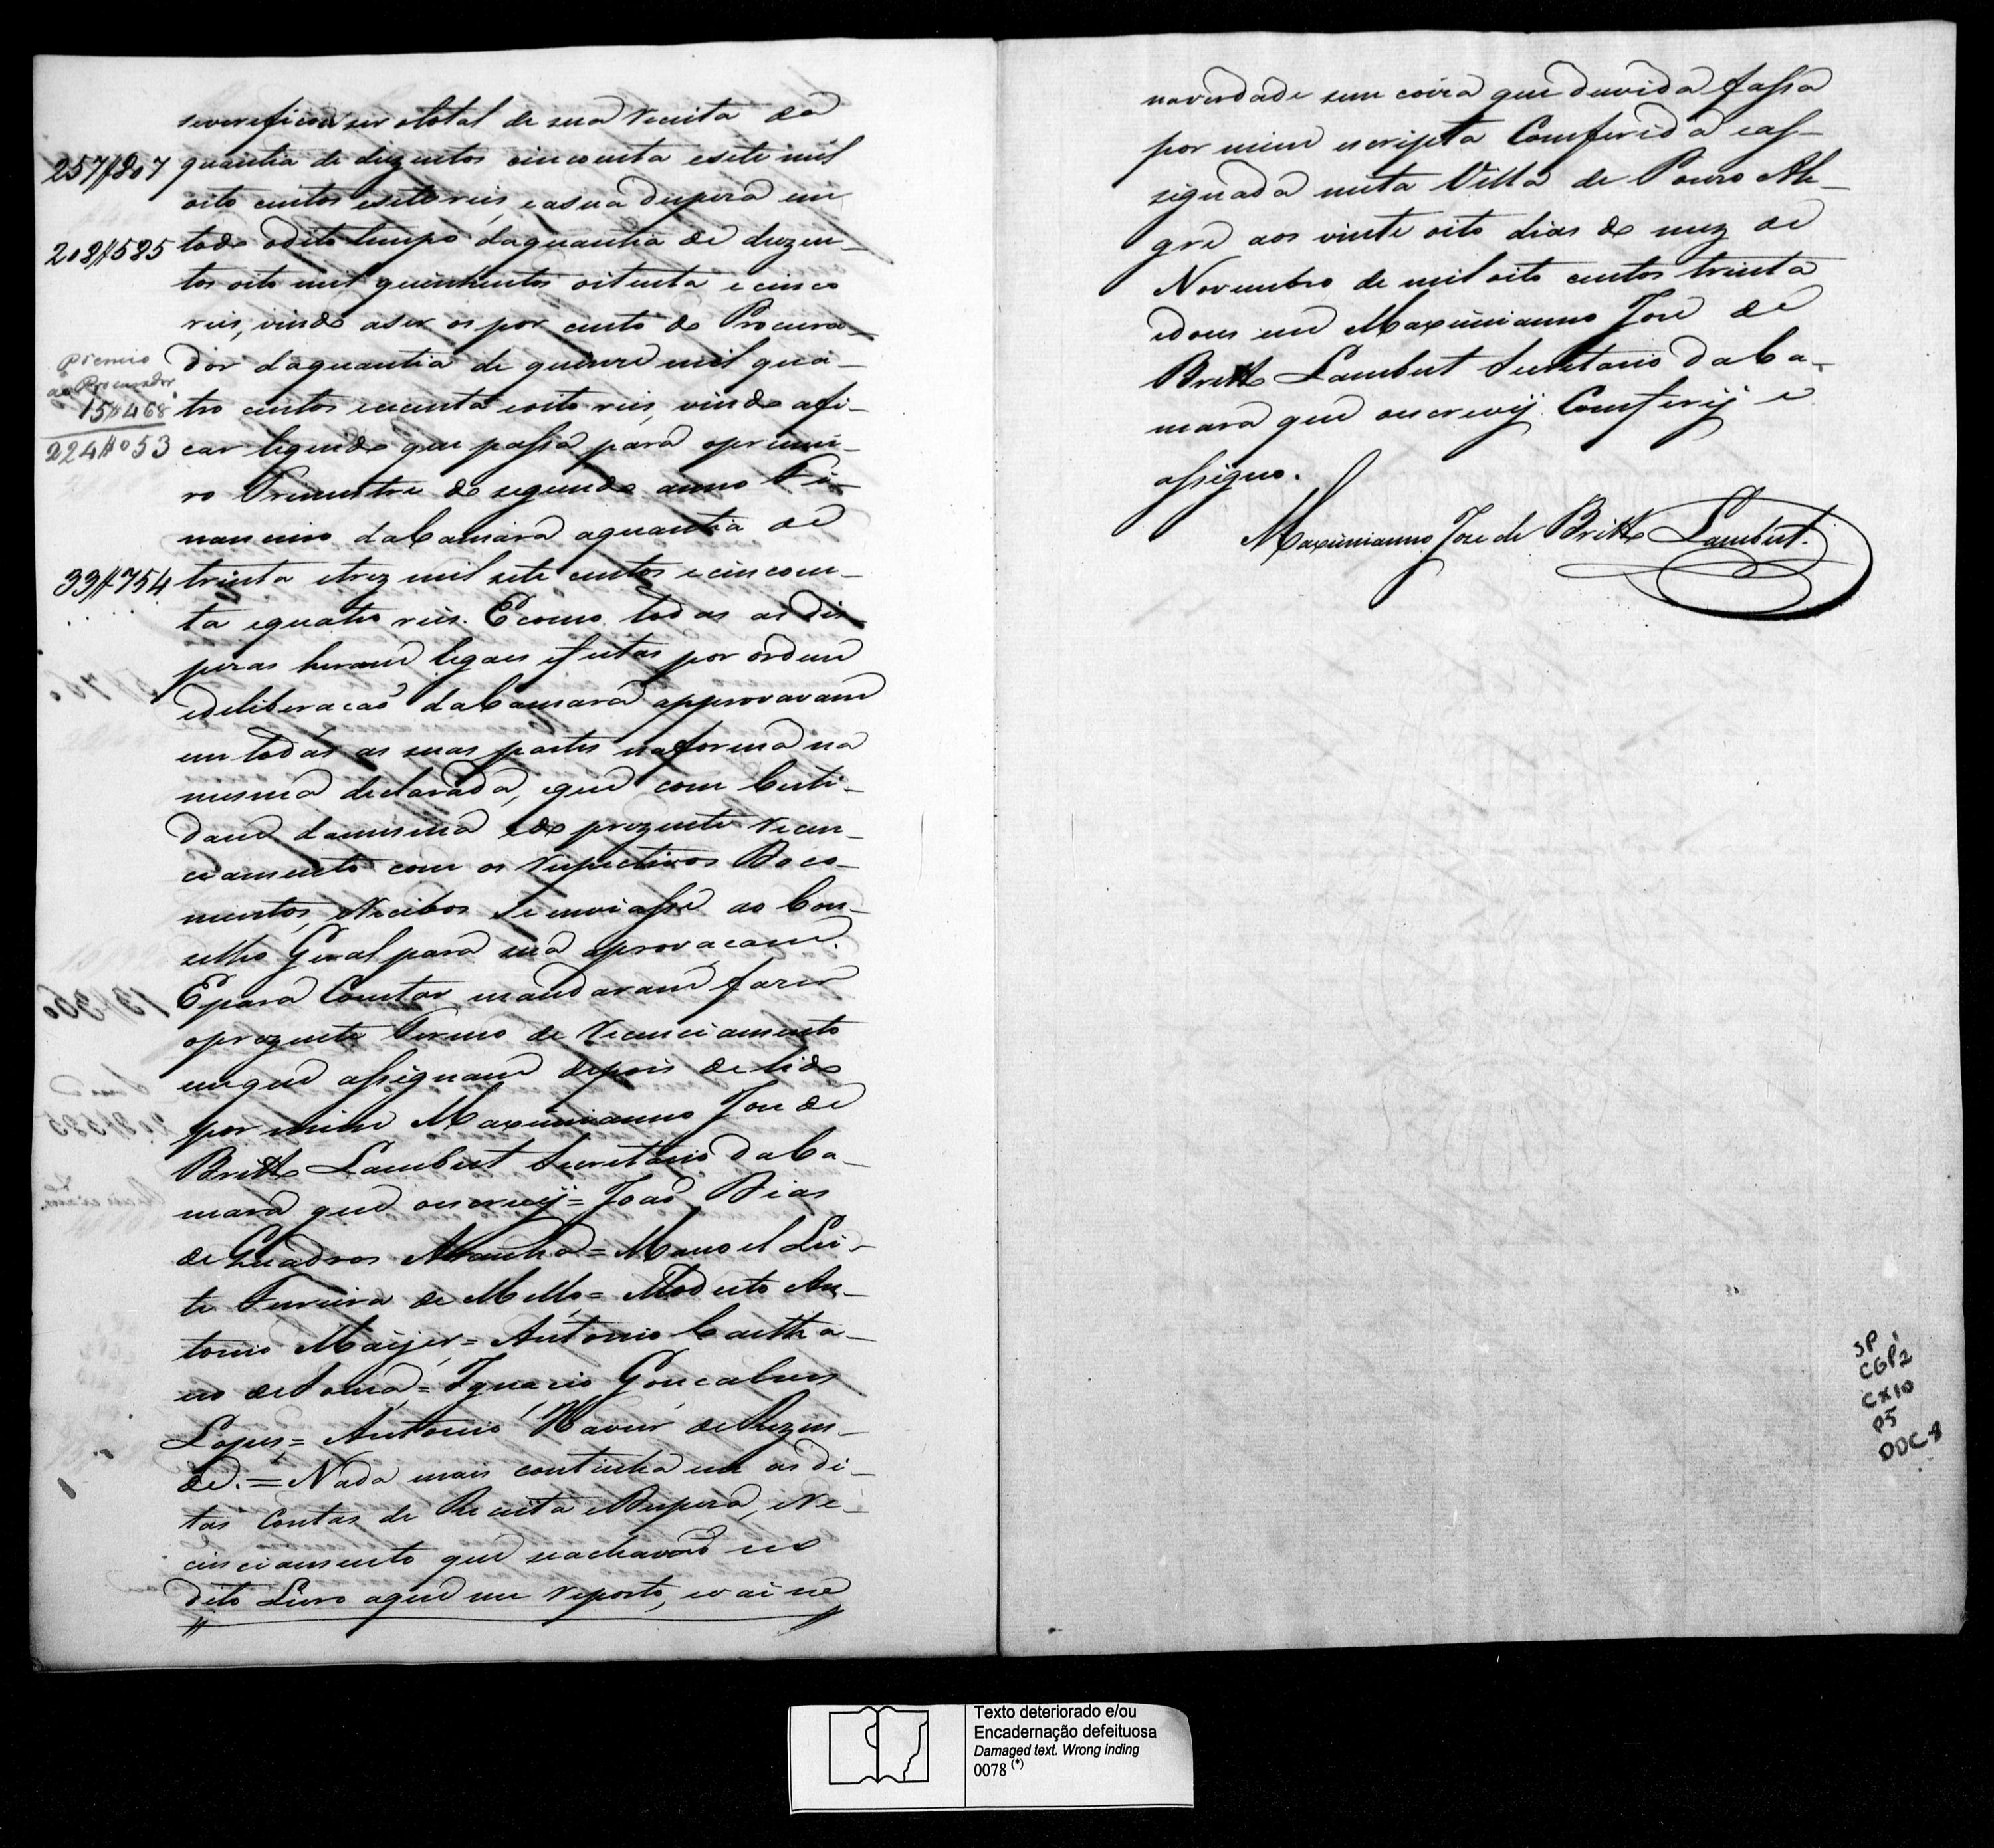 severeficou ser ototal de sua receita da
257$807 quantia de duzentos cincoenta esete mil
oito centos esete reis, easua dispeza em
208$585 todo odito tempo daquantia de duzen-
tos oito mil quinhentos oitenta e cinco
reis, vindo aser os por cento do Procura-
Premio
ao Procurador
15$468
224$053
dor daquantia de quinze mil qua-
tro centos secenta eoito reis, vindo afi-
car liquido que passa para oprimei-
ro Trimestre do segundo anno Fi-
nanceiro daCamara aquantia de
33$754 trinta etrez mil sete centos ecincoen-
ta equatro reis. Ecomo todas as Dis-
pezas heram legaes efeitas por ordem
edeliberacaõ daCamara approvaram
em todas as suas partes naforma na
mesma declarada, eque com Certi-
dam damesma edo prezente recen-
ciamento com os respectivos Doco-
mentos, eRecibos se inviasse ao Con-
selho Geral para sua aprovacam.
Epara Constar mandaram fazer
oprezente Termo de recenciamento
emque assignam depois de lido
por mim Maximianno Joze de
Britto Lambert Secretario daCa-
mara que oescrevij = Joaõ Dias
de Quadros Aranha = Manoel Lei-
te Ferreira de Mello = Modesto An-
tonio Maÿer = Antonio Caetha-
no deSouza = Ignacio Goncalves
Lopes = Antonio Xavier deRezen-
de. = Nada mais continha em as di-
tas Contas de Receita eDispeza, eRe-
cinciamento que seachavaõ no
dito Livro aque me reporto, evai na
naverdade sem coiza que duvida fassa
por mim escripta Comferida eas-
signada nesta Villa de Pouzo Ale-
gre aos vinte oito dias do mez de
Novembro de mil oito centos trinta
edous eu Maximianno Joze de
Britto Lambert Secretario daCa-
mara que oescrevij Comferij e
assigno.
Maximianno Joze de Britto Lambert.
SP
CGP2
CX10
P5
DOC.8
Texto deteriorado e/ou
Encadernação defeituosa
Damaged text. Wrong inding
0078 (*)